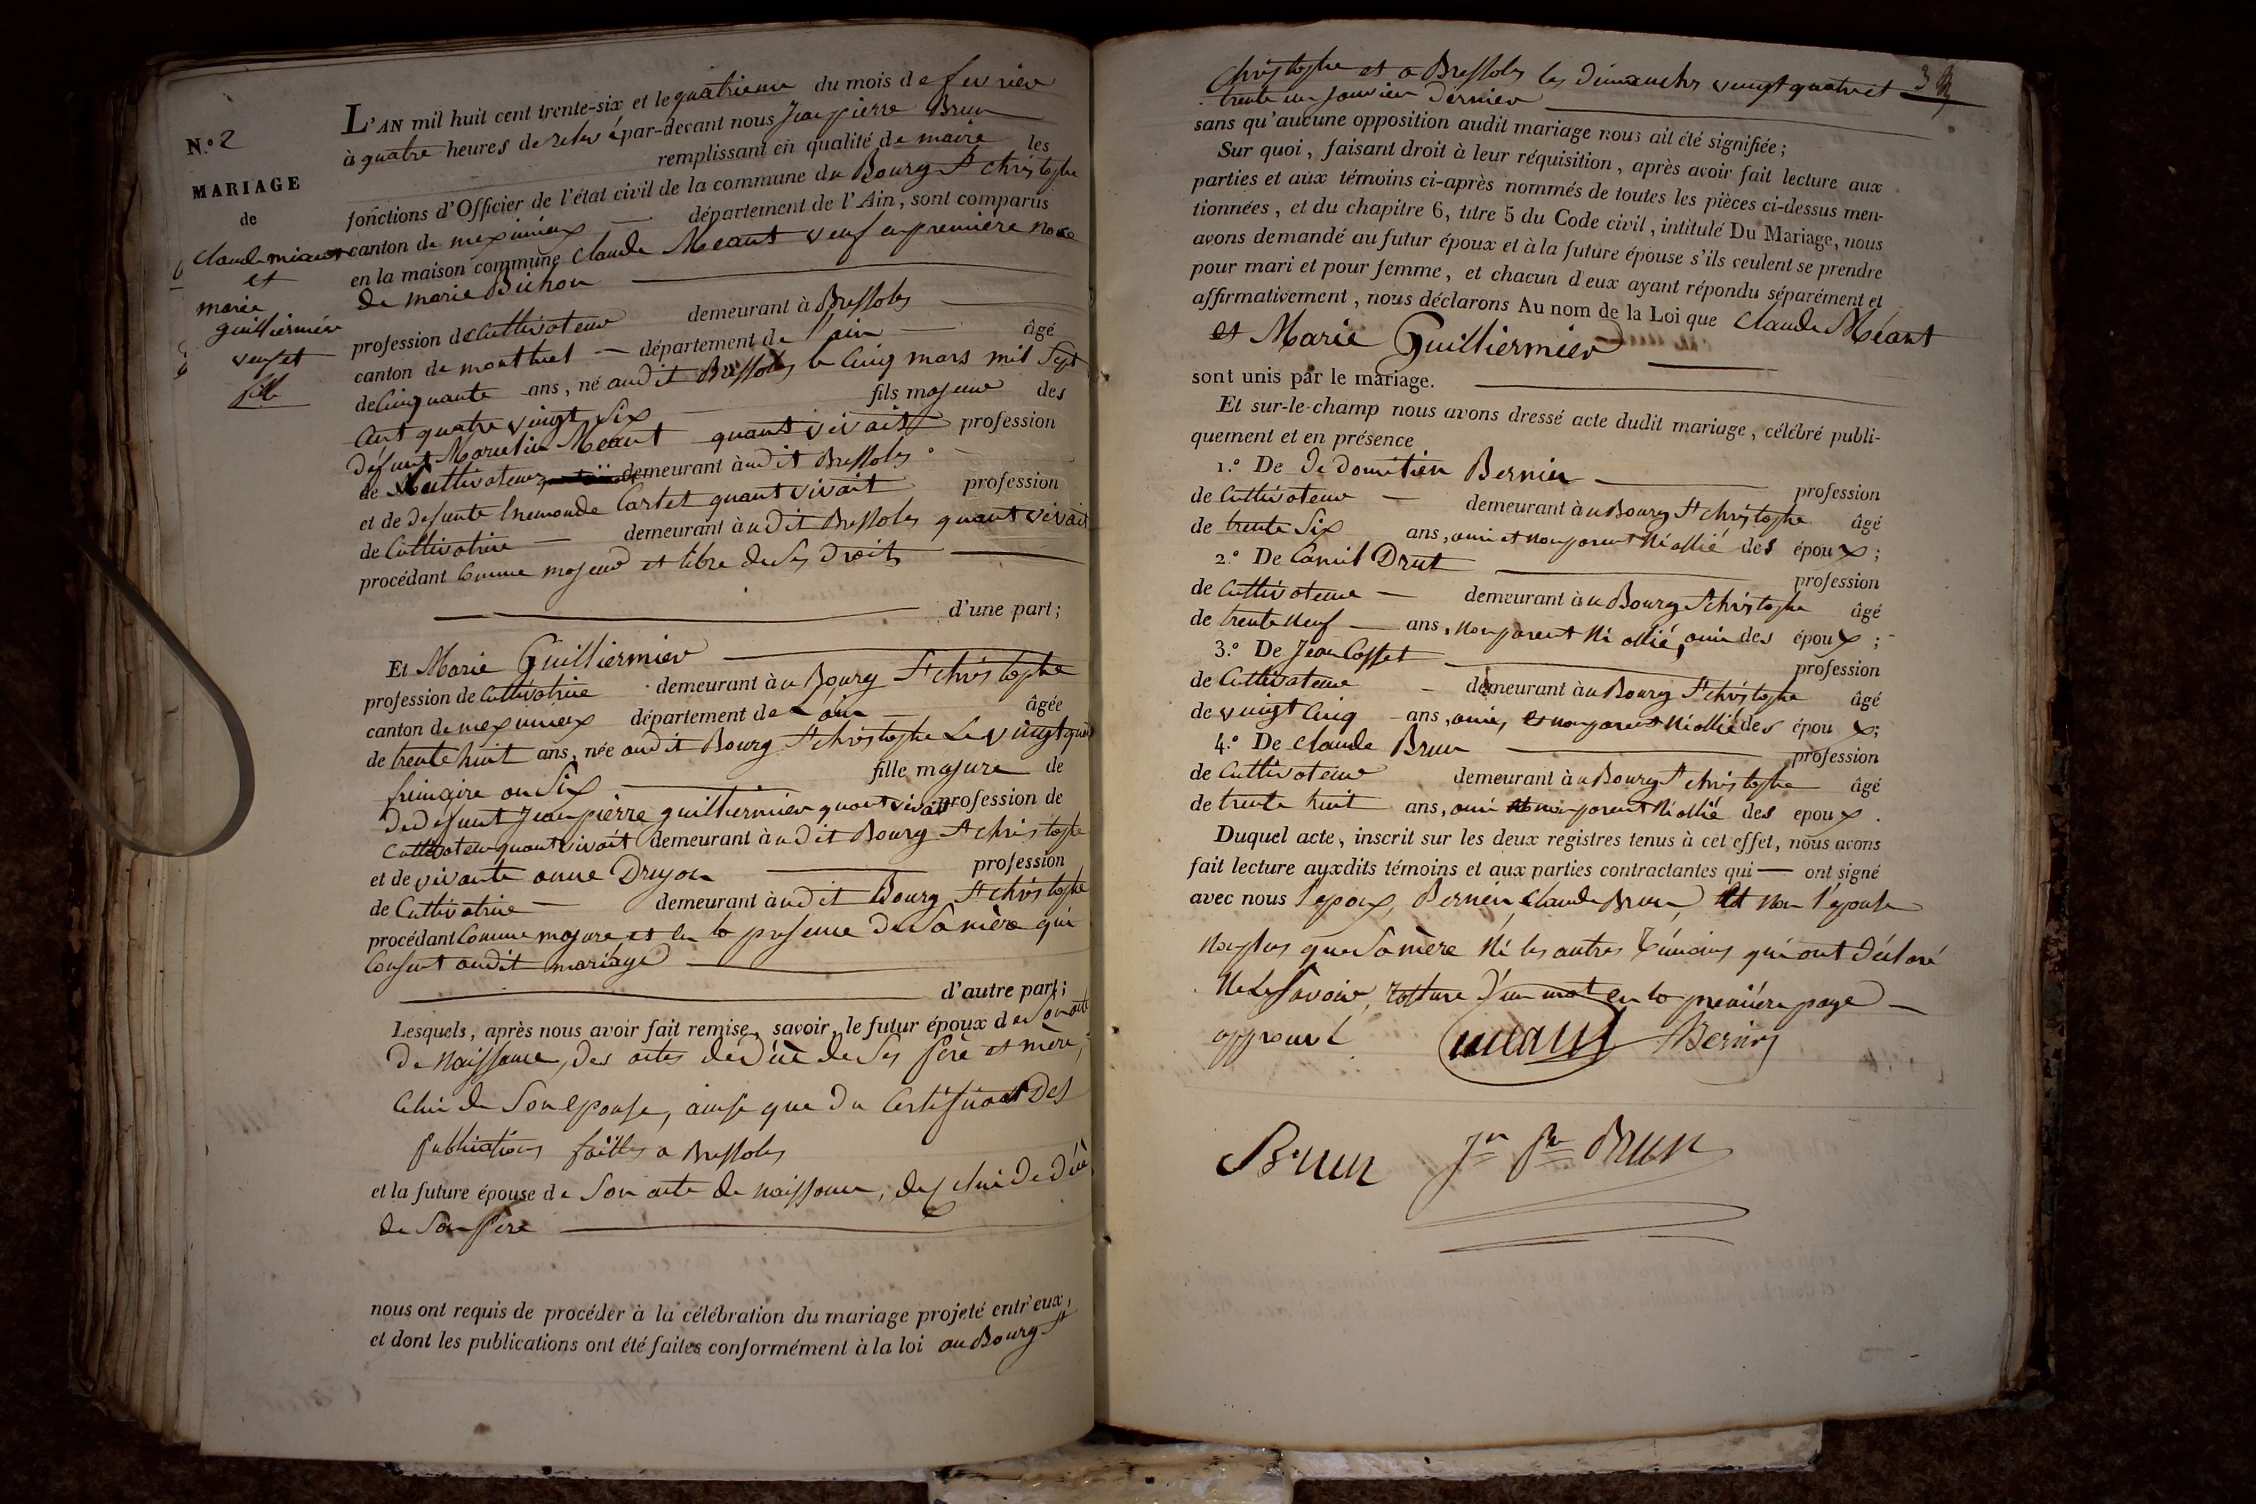 N.º 2
MARIAGE
de
Claude miant
et
marie
guilliermier
veuf et
fille
L'AN mil huit cent trente-six et le quatrieme du mois de fevrier
à quatre heures de relevé par-devant nous Jean pierre Brun
remplissant en qualité de maire les
fonctions d'Officier de l'état civil de la commune du Bourg St christophe
canton de meximieux département de l'Ain, sont comparus
en la maison commune Claude Méant veuf en premiere noce
de marie Bichon
profession de Cultivateur demeurant à Bressoles
canton de montluel département de l'ain âgé
de Cinquante ans, né audit Bressoles le Cinq mars mil Sept
Cent quatre vingt Six fils majeur des
défunt Marcelin Méant quant vivait profession
de Cultivateur demeurant àudit Bressoles
et de defunte Enemonde Cartet quant vivait profession
de Cultivatrice demeurant àudit Bressoles quant vivait
procédant Comme majeur et libre de Ses Droits
d'une part;
Et Marie Guilliermier
profession de Cultivatrice demeurant àu Bourg St christophe
canton de meximieux département de L'ain âgée
de trente huit ans, née audit Bourg St christophe Le vingt quatre
frimaire an Six fille majure de
de defunt Jean pierre guilliermier quant vivait profession de
Cultivateur quant vivait demeurant àudit Bourg St christophe
et de vivante anne Druyon profession
de Cultivatrice demeurant àudit Bourg St christophe
procédant Comme majure et en la presence de Sa mère qui
Consent audit mariage
d'autre part;
Lesquels, après nous avoir fait remise, savoir, le futur époux de Son acte
de naissance, des actes de décès de Ses père et mère,
Celui de Son épouse, ainsi que du Certificat Des
publications faittes a Bressoles
et la future épouse de Son acte de naissance, de celui de décès
de Son père
nous ont requis de procéder à la célébration du mariage projeté entr'eux,
et dont les publications ont été faites conformément à la loi au Bourg St
Christophe et a Bressoles les dimanches vingt quatre et
trente un Janvier dernier
sans qu'aucune opposition audit mariage nous ait été signifiée;
Sur quoi, faisant droit à leur réquisition, après avoir fait lecture aux
parties et aux témoins ci-après nommés de toutes les pièces ci-dessus men-
tionnées, et du chapitre 6, titre 5 du Code civil, intitulé Du Mariage, nous
avons demandé au futur époux et à la future épouse s'ils veulent se prendre
pour mari et pour femme, et chacun d'eux ayant répondu séparément et
affirmativement, nous déclarons Au nom de la Loi que Claude Méant
et Marie Guilliermier
sont unis par le mariage.
Et sur-le-champ nous avons dressé acte dudit mariage, célébré publi-
quement et en présence
1.º De de domitien Bernin profession
de Cultivateur demeurant àu Bourg St christophe âgé
de trente Six ans, ami et non parent Ni allié des époux;
2.º De Camil Drut profession
de Cultivateur demeurant àu Bourg St christophe âgé
de trente neuf ans, non parent Ni allié, ami des époux;
3.º De Jean Cosset profession
de Cultivateur demeurant àu Bourg St christophe âgé
de vingt Cinq ans, amis, et non parent Ni allié des époux;
4.º De Claude Brun profession
de Cultivateur demeurant àu Bourg St christophe âgé
de trente huit ans, ami et non parent Ni allié des epoux.
Duquel acte, inscrit sur les deux registres tenus à cet effet, nous avons
fait lecture auxdits témoins et aux parties contractantes qui ont signé
avec nous l'époux, Bernin, Claude Brun, Et non l'épouse
Non plus que Sa mère Ni les autres témoins qui ont déclaré
Ne Le Savoir, rature d'un mot en la première page
approuvé
méant Bernin
Brun Jn Pre Brun